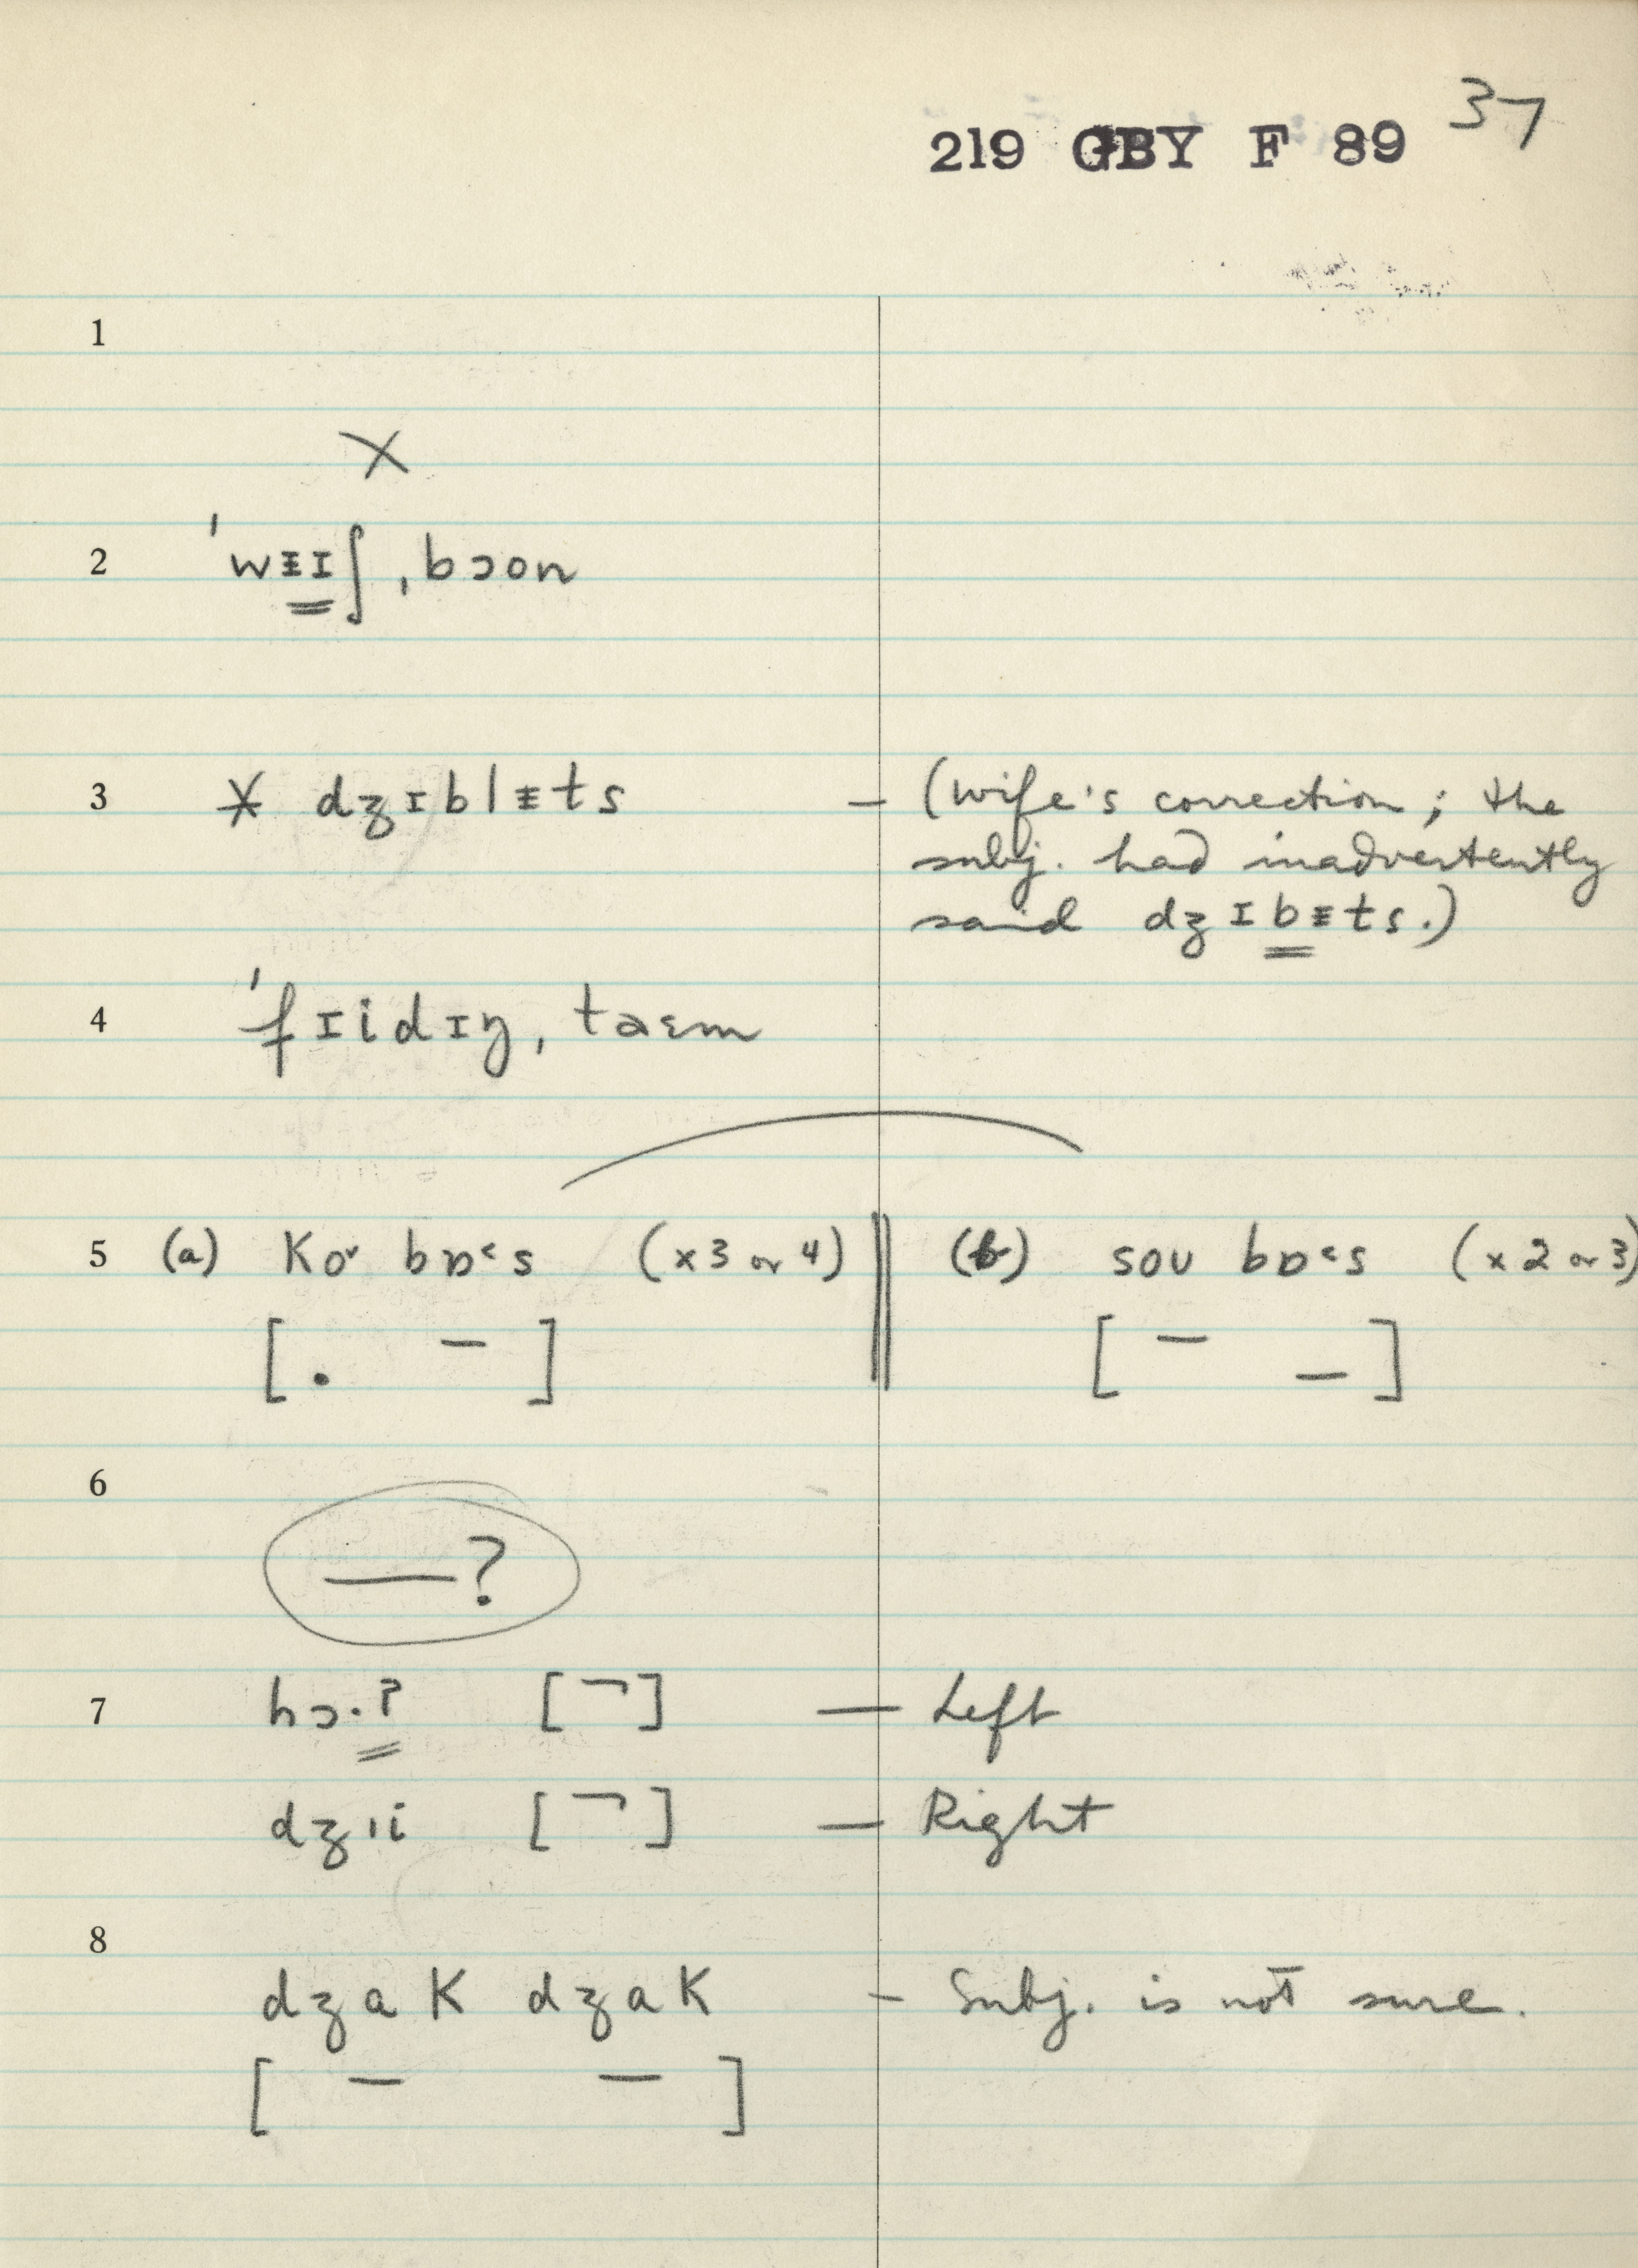 37
219 GBY F 89
1
X
2 ˈwɪ̵ɪʃ ˌbɔon
3 * dʒɪblɪ̵ts – (wife's correction; the
subj. had inadvertently
said dʒɪbɪ̵ts.)
4 ˈfɪidɪŋ ˌtaɛm
5 (a) Ko˅ bɒ˂s (x 3 or 4) (b) soʊ bɒ˂s (x 2 or 3)
[ . – ] [ – _ ]
6
—?
7 hɔ·ʔ [ ¬ ] — Left
dʒɪi [ ¬ ] — Right
8
dʒaK dʒaK – Subj. is not sure.
[ – – ]